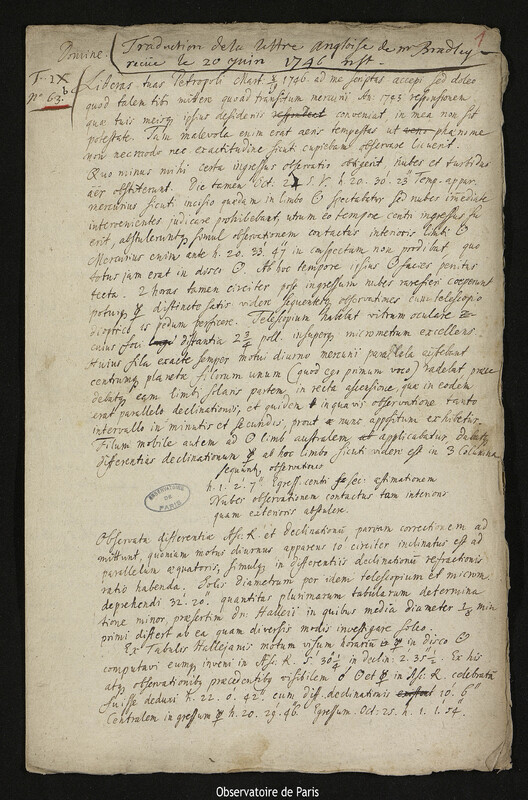 1
Domine. Traduction de la lettre Angloise de mr Bradley
recüe le 20 Juin 1746 nst.
T. IX
No 63. b
Literas tuas Petropoli Mart. 1746. ad me scriptas accepi sed doleo
quod talem tibi mittere quoad transitum mercurii An. 1743 responsionem
quæ tuis meisq ipsius desideriis conveniat in mea non sit
potestate. Tam malevola enim erat aeris tempestas ut phænomena
non necmodo nec exactitudine sicut cupiebam observare licuerit.
Quo minus nihi certa ingressus observatio obtigerit nubes et turbidus
aër obstiterunt. Die tamen Oct. S. V. h. 20. 30' 23" Temp. appar.
mercurius sicuti incisio quædam in limbo ☉ spectabatur sed nubes immediate
intervenientes judicare prohibebant, utrum eo tempore centri ingressus
erit, abstulerunt simul observationem contactus interioris limbi ☉
Mercurius enim ante h. 20. 33. 47" in conspectum non prodibat quo
totus jam erat in disco ☉. Ab hoc tempore ipsius ☉ facies penitus
tecta. 2 horas tamen circiter post ingressum nubes rarefieri coeperunt
potuiq ☿ distincte satis videre sequentesq observationes cum telescopio
dioptrico 15 pedum perficere. Telescopium habebat vitrum oculare
culus foci distantia 2 3/4 poll. insuperq micrometrum excellens.
Huius fila exacte semper motui diurno mercurii parallela
centrumq planetæ filorum unum (quod ego primum voco) radebat præce
debatq eam limbi solaris partem in recta ascensione, quæ in eodem
erat parallelo declinationis, et quidem in quavis observatione tanto
intervallo in minutis et secundis, prout nunc appositum exhibetur.
Filum mobile autem ad ☉ limbum australem applicabatur, dabatq
differentias declinationum ☿ ab hoc limbo sicuti videre est in 3 Columna
sequunt. observationes
h. 1. 2. 7" Egress. centri sec: æstimationem
Nubes observationem contactus tam interioris
quam exterioris abstulere.
OBSERVATOIRE DE PARIS
Observatæ differentiæ Asc. R. et declinationum parvam correctionem ad
mittunt, quoniam motus diurnus apparens 10' circiter inclinatus est ad
parallelum æquatoris, simulq in differentiis declinationum refractionis
ratio habenda. Solis diametrum per idem telescopium et microm.
deprehendi 32. 20" quantitas plurimarum tabularum determina
tione minor, præsertim dn. Halleii in quibus media diameter 1/8 min
primi differt ab ea quam diversis modis investigare soleo.
Ex Tabulis Hallejanis motum visum horarium ☿ in disco ☉
computavi eumq inveni in Asc. R. 5' 30" 1/4 in declin: 2. 35" 1/2. Ex his
atq observationib præcedentibq visibilem ☌ ☉ et ☿ in Asc. R. celebratam
fuisse deduxi h. 22. 0'. 42" cum diff. declinationis 10'. 6"
Centralem ingressum ☿ h. 20. 29'. 46. Egressum. Oct. 25. h. 1. 1'. 54"
Observatoire de Paris